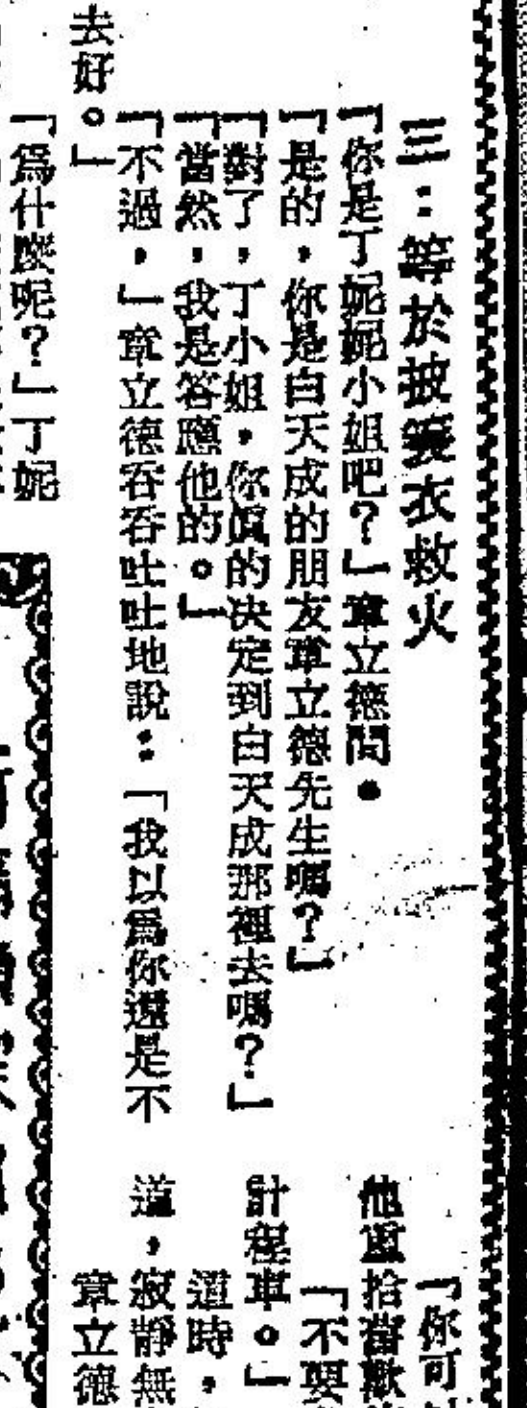 三：等於披簑衣救火
「你是丁妮妮小姐吧？」章立德問。
「是的，你是白天成的朋友章立德先生嗎？」
「對了，丁小姐，你眞的决定到白天成那裡去嗎？」
「當然，我是答應他的。」
「不過，」章立德吞吞吐吐地說：「我以爲你還是不
去好。」
「爲什麽呢？」丁妮
「你可
他重拾舊歡
「不要
計程車。」
道時，
道，寂靜無
章立德